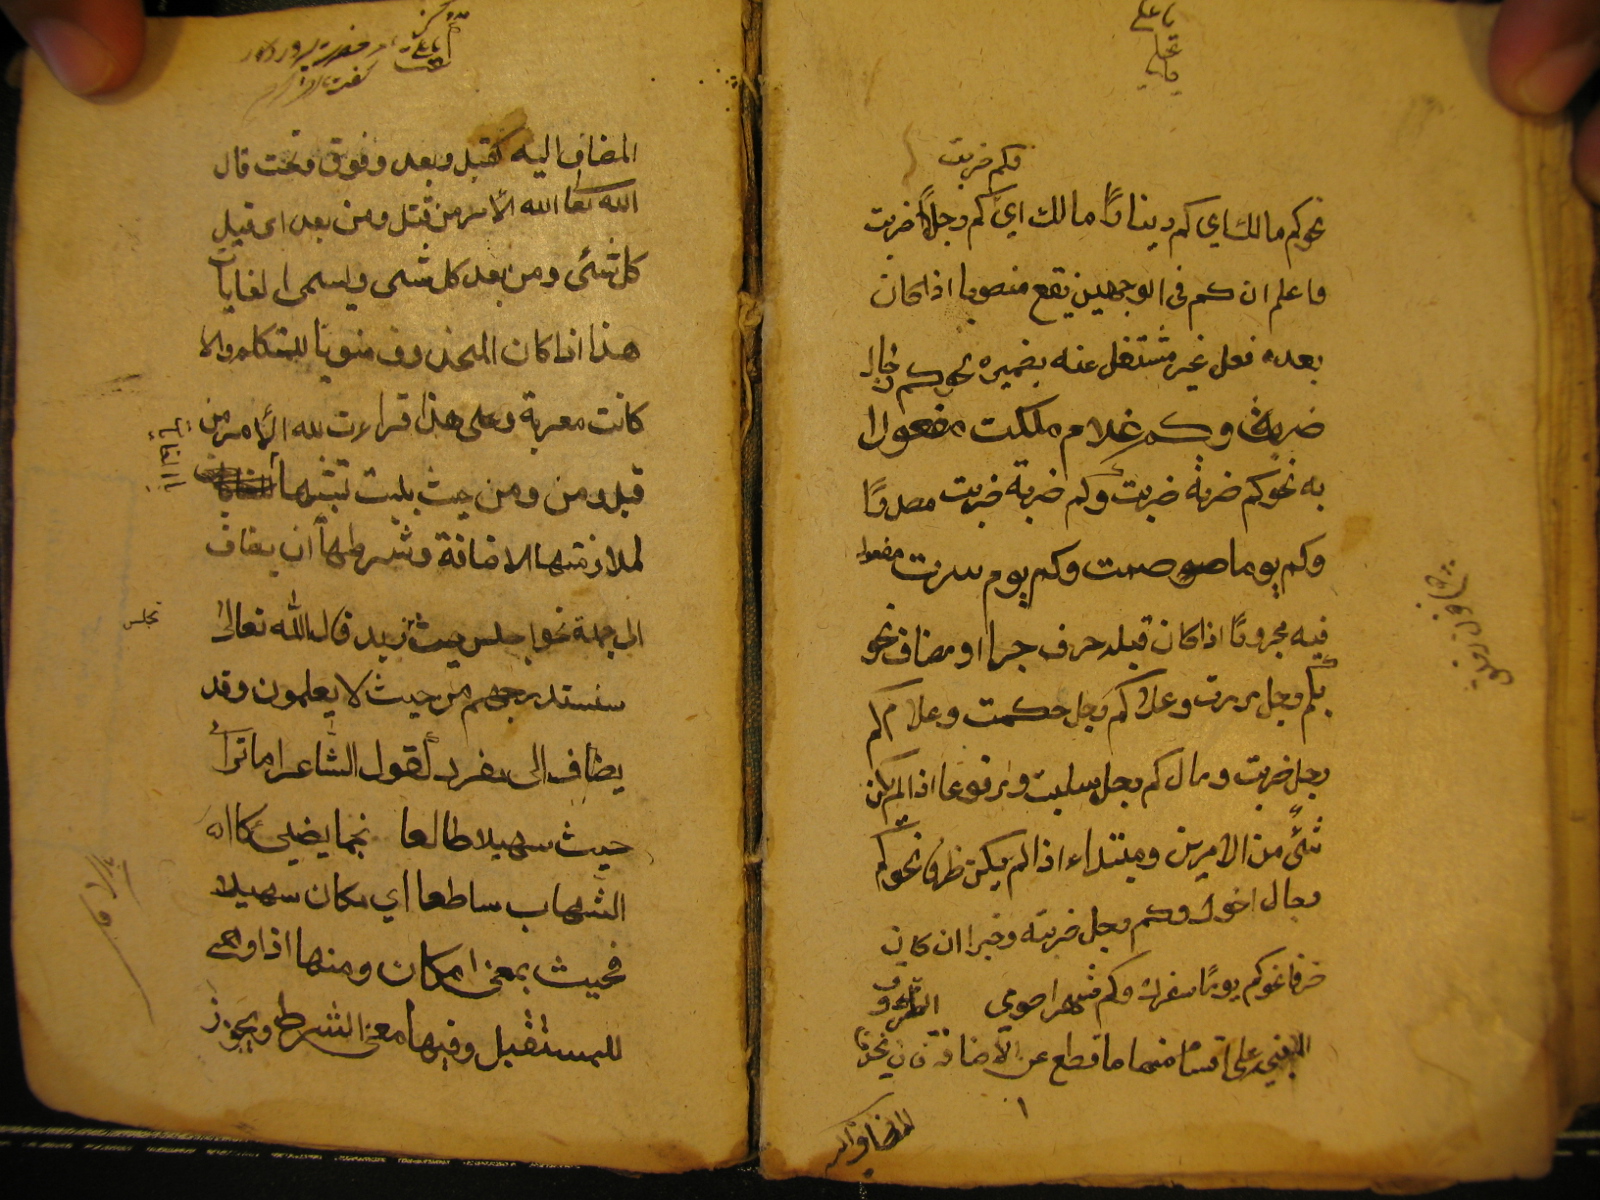 يا علي
وكم ضربت
نحو كم مالك اي كم دينارا مالك اي كم رجلا ضربت
واعلم ان كم في الوجهين يقع منصوبا اذا كان
بعده فعل غير مشتغل عنه بضميره نحو كم رجلا
ضربت وكم غلام ملكت مفعولا
به نحو كم ضربة ضربت وكم ضربة ضربت مصدرا
وكم يوما صمت وكم يوم سرت مفعولا
فيه مجرورا اذا كان قبله حرف جر او مضاف نحو
بكم رجل مررت وعلى كم رجل حكمت وغلام كم
رجل ضربت ومال كم رجل سلبت ومرفوعا اذا لم يكن
شئ من الامرين ومبتداء اذا لم يكن ظرفا نحو كم
رجال اخوك وكم رجل ضربته وخبرا ان كان
ظرفا نحو كم يوما سفرك وكم شهرا صومي الظروف
المبنية على اقسام منها ما قطع عن الاضافة فان يحذف
المضاف اليه
المضاف اليه كقبل وبعد وفوق وتحت قال
الله تعا لله الامر من قبل ومن بعد اى قبل
كل شئ ومن بعد كل شى ويسمى الغايات
هذا اذا كان المحذوف منويا للمتكلم والا
كانت معربة وعلى هذا قراءت لله الامر من
قبل ومن ومن حيث بنيت تشبيها
بالغايات
لملازمتها الاضافة وشرطها ان يضاف
الى جملة نحو اجلس حيث زيد قال الله تعالى
تجلس
سنستدرجهم من حيث لا يعلمون وقد
يضاف الى مفرد كقول الشاعر اما ترى
حيث سهيلا طالعا نجما يضيئ كا
الشهاب ساطعا اي مكان سهيلا
فحيث بمعنى مكان ومنها اذا وهى
للمستقبل وفيها معنى الشرط ويجوز